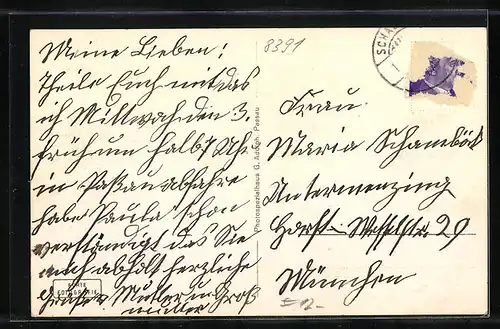 8391
Meine Lieben!
Theile Euch mit das
ich Mittwoch den 3.
früh um halb 7 Uhr
in Paßau abfahre
habe Paula schon
verständigt das Sie
mich abholt herzliche
Grüße Mutter u Groß
mutter
Photospezialhaus G. Adolph, Passau
ECHTE
FOTOGRAFIE
SCHA
Frau
Maria Schamböck
Untermenzing
Horst-Wesselstr. 29
München